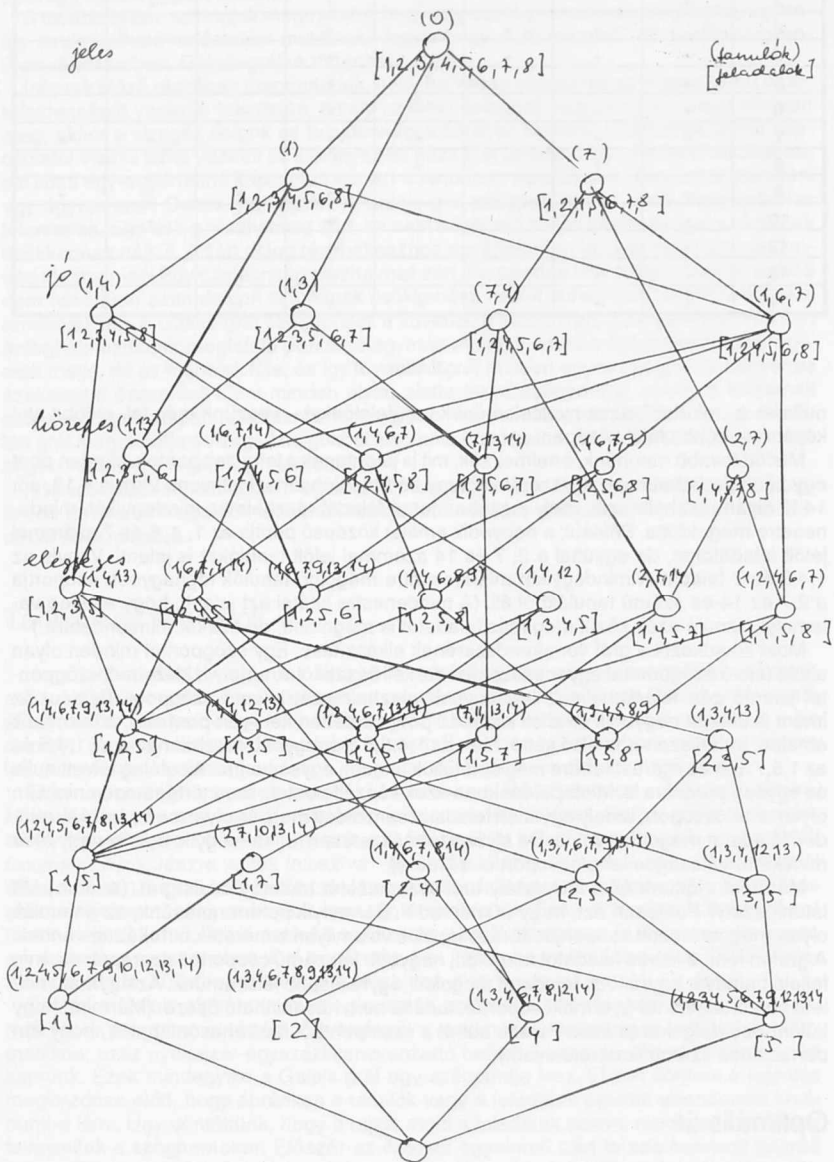 (0)
jeles
[1,2,3,4,5,6,7,8]
(tanulók)
[feladatok]
(1)
[1,2,3,4,5,6,8]
(7)
[1,2,4,5,6,7,8]
jó
(1,4)
[1,2,3,4,5,8]
(1,3)
[1,2,3,5,6,7]
(7,4)
[1,2,4,5,6,7]
(1,6,7)
[1,2,4,5,6,8]
közepes (1,13)
[1,2,3,5,6]
(1,6,7,14)
(1,4,6,7)
[1,2,4,5,8]
(7,13,14)
[1,2,5,6,7]
(1,6,7,9)
[1,2,5,6,8]
(2,7)
[1,4,5,7,8]
elégséges
(1,4,13)
[1,2,3,5]
(1,6,7,4,14)
(1,6,7,9,13,14)
[1,2,5,6]
[1,2,5,8]
(1,4,12)
[1,3,4,5]
(2,7,14)
[1,4,5,7]
(1,2,4,6,7)
[1,4,5,8]
(1,4,6,7,9,13,14)
[1,2,5]
(1,4,12,13)
[1,3,5]
[1,4,5]
(7,11,13,14)
[1,5,7]
(1,3,4,13)
[2,3,5]
(1,2,4,5,6,7,8,13,14)
[1,5]
(2,7,10,13,14)
[1,7]
(1,4,6,7,8,14)
(1,3,4,6,7,9,13,14)
[2,5]
(1,3,4,12,13)
[3,5]
[1]
(1,3,4,6,7,8,9,13,14)
[2]
[4]
[5]